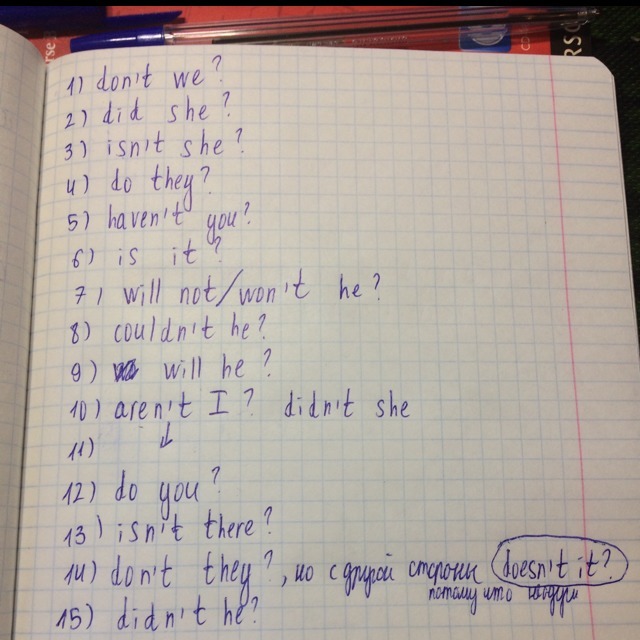 1) don't we?
2) did she?
3) isn't she?
4) do they?
5) haven't you?
6) is it?
7) will not/won't he?
8) couldn't he?
9) will he?
10) aren't I? didn't she
11) ↓
12) do you?
13) isn't there?
14) don't they?, но с другой стороны doesn't it?
потому что
15) didn't he?